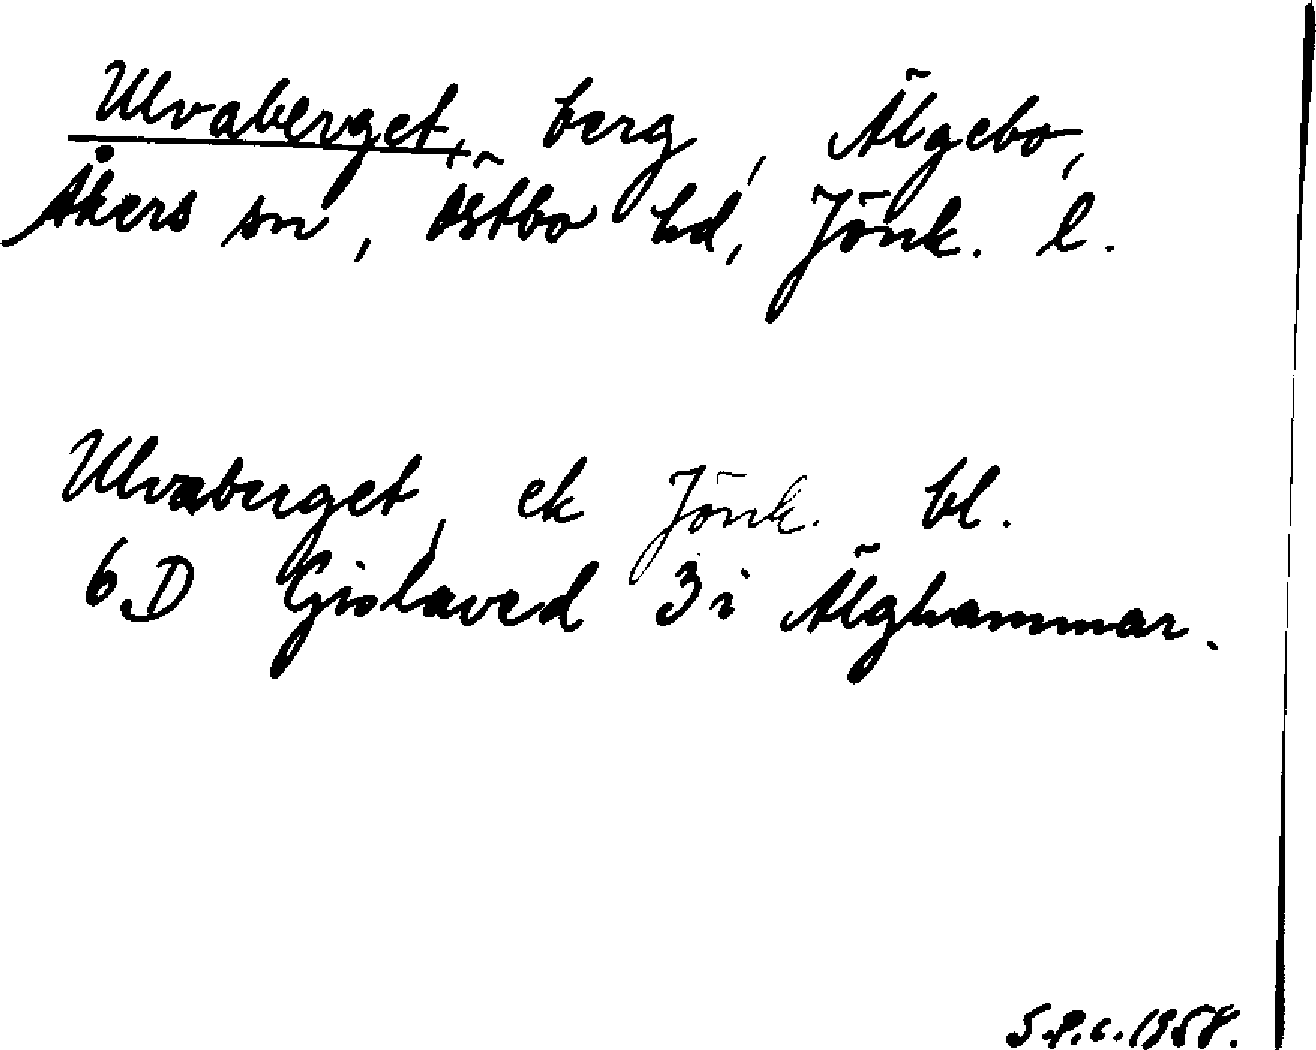 Ulvaberget, berg, Älgebo,
Åkers sn, Östbo hd, Jönk. l.
Ulvaberget, ek Jönk. bl.
6D Gislaved 3i Älghammar.
1958.